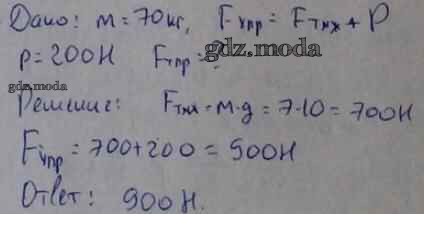 Дано: m = 70кг, Fупр = Fтяж + P
P = 200Н Fупр = ?
gdz.moda
gdz.moda
Решение: Fтяж = m·g = 7·10 = 700Н
Fупр = 700+200 = 900Н
Ответ: 900Н.